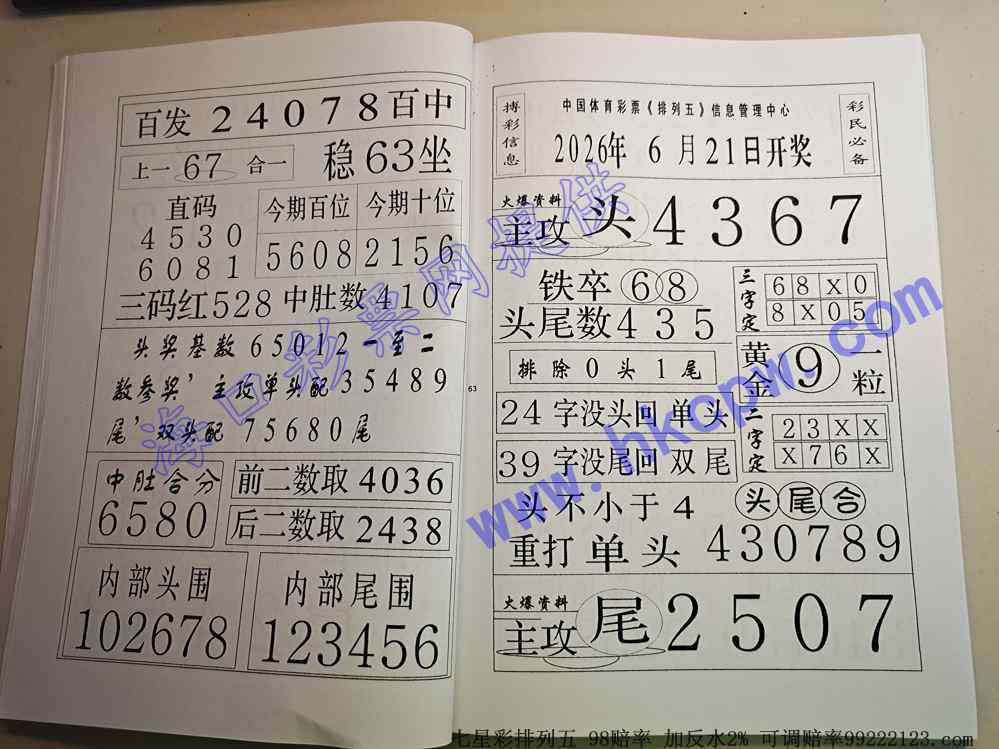 百发 24078 百中
上一 67 合一 稳 63 坐
直码
4530
6081
今期百位 今期十位
5608 2156
三码红 528 中肚数 4107
头奖基数 65012 一至二
数参奖’主攻单头配 35489
尾’双头配 75680 尾
中肚合分
6580
前二数取 4036
后二数取 2438
内部头围
102678
内部尾围
123456
63
搏彩信息
中国体育彩票《排列五》信息管理中心
2026年 6 月21日开奖
彩民必备
火爆资料
主攻 头 4367
铁卒 68
头尾数 435
排除 0 头 1 尾
三字定
68X0
8X05
黄金 9 一粒
24 字没头回 单头
39 字没尾回 双尾
二字定
23XX
X76X
头不小于 4 头尾合
重打 单头 430789
火爆资料
主攻 尾 2507
海口彩票网提供
www.hkopw.com
七星彩排列五 98赔率 加反水2% 可调赔率99222123.com